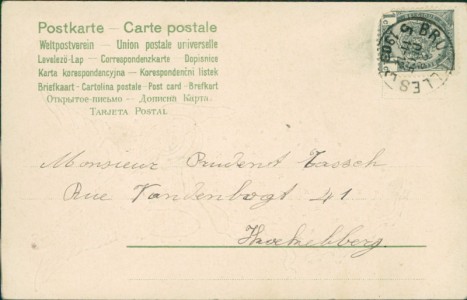 Postkarte – Carte postale
Weltpostverein – Union postale universelle
Levelező-Lap – Correspondenzkarte Dopisnice
Karta korespondencyjna – Korespondenční lístek
Briefkaart - Cartolina postale - Post card - Brefkort
Открытое-письмо – Дописна Карта.
Tarjeta Postal
BRUXELLES
Monsieur Prudent
Rue Vandenbogt 41